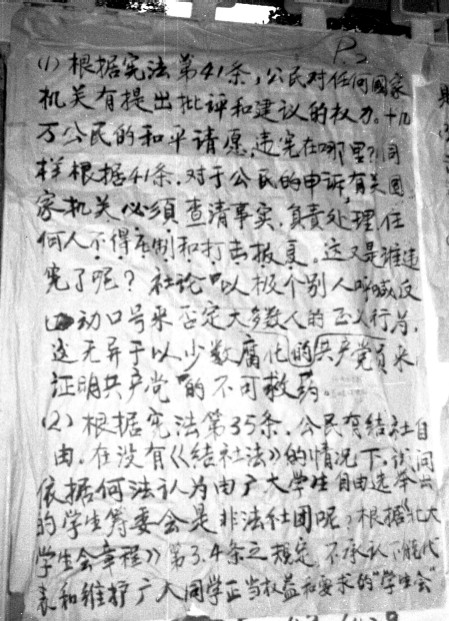 P.2
(1) 根据宪法第41条，公民对任何國家
机关有提出批评和建议的权力。十几
万公民的和平请愿，违宪在哪里？同
样根据41条，对于公民的申诉，有关國
家机关必須查清事实，负责处理，任
何人不得压制和打击报复。这又是谁违
宪了呢？社论"以极个别人呼喊反
动口号来否定大多数人的正义行为，
这无异于以少数腐化的共产党員来
证明共产党"的不可救药
(2) 根据宪法第35条，公民有结社自
由，在没有《结社法》的情况下，试问
依据何法认为由广大学生自由选举出
的学生筹委会是非法社团呢？根据《北大
学生会章程》第3.4条之规定，不承认不能代
表和维护广大同学正当权益和要求的"学生会"